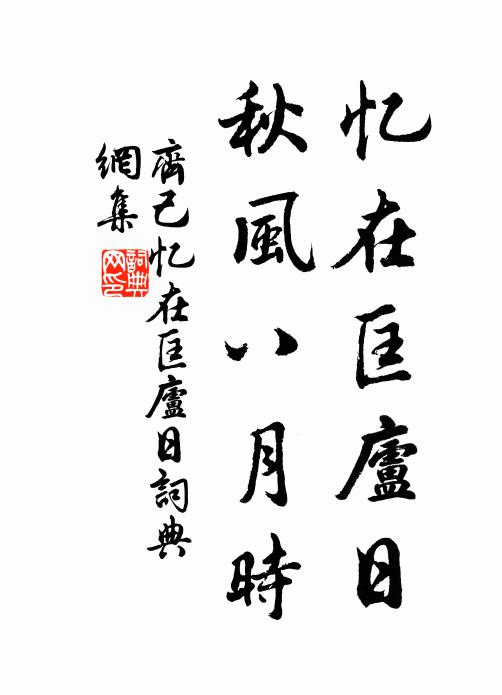 忆在匡廬日
秋風八月時
齊己忆在匡廬日詞典
網集
詞典
网印